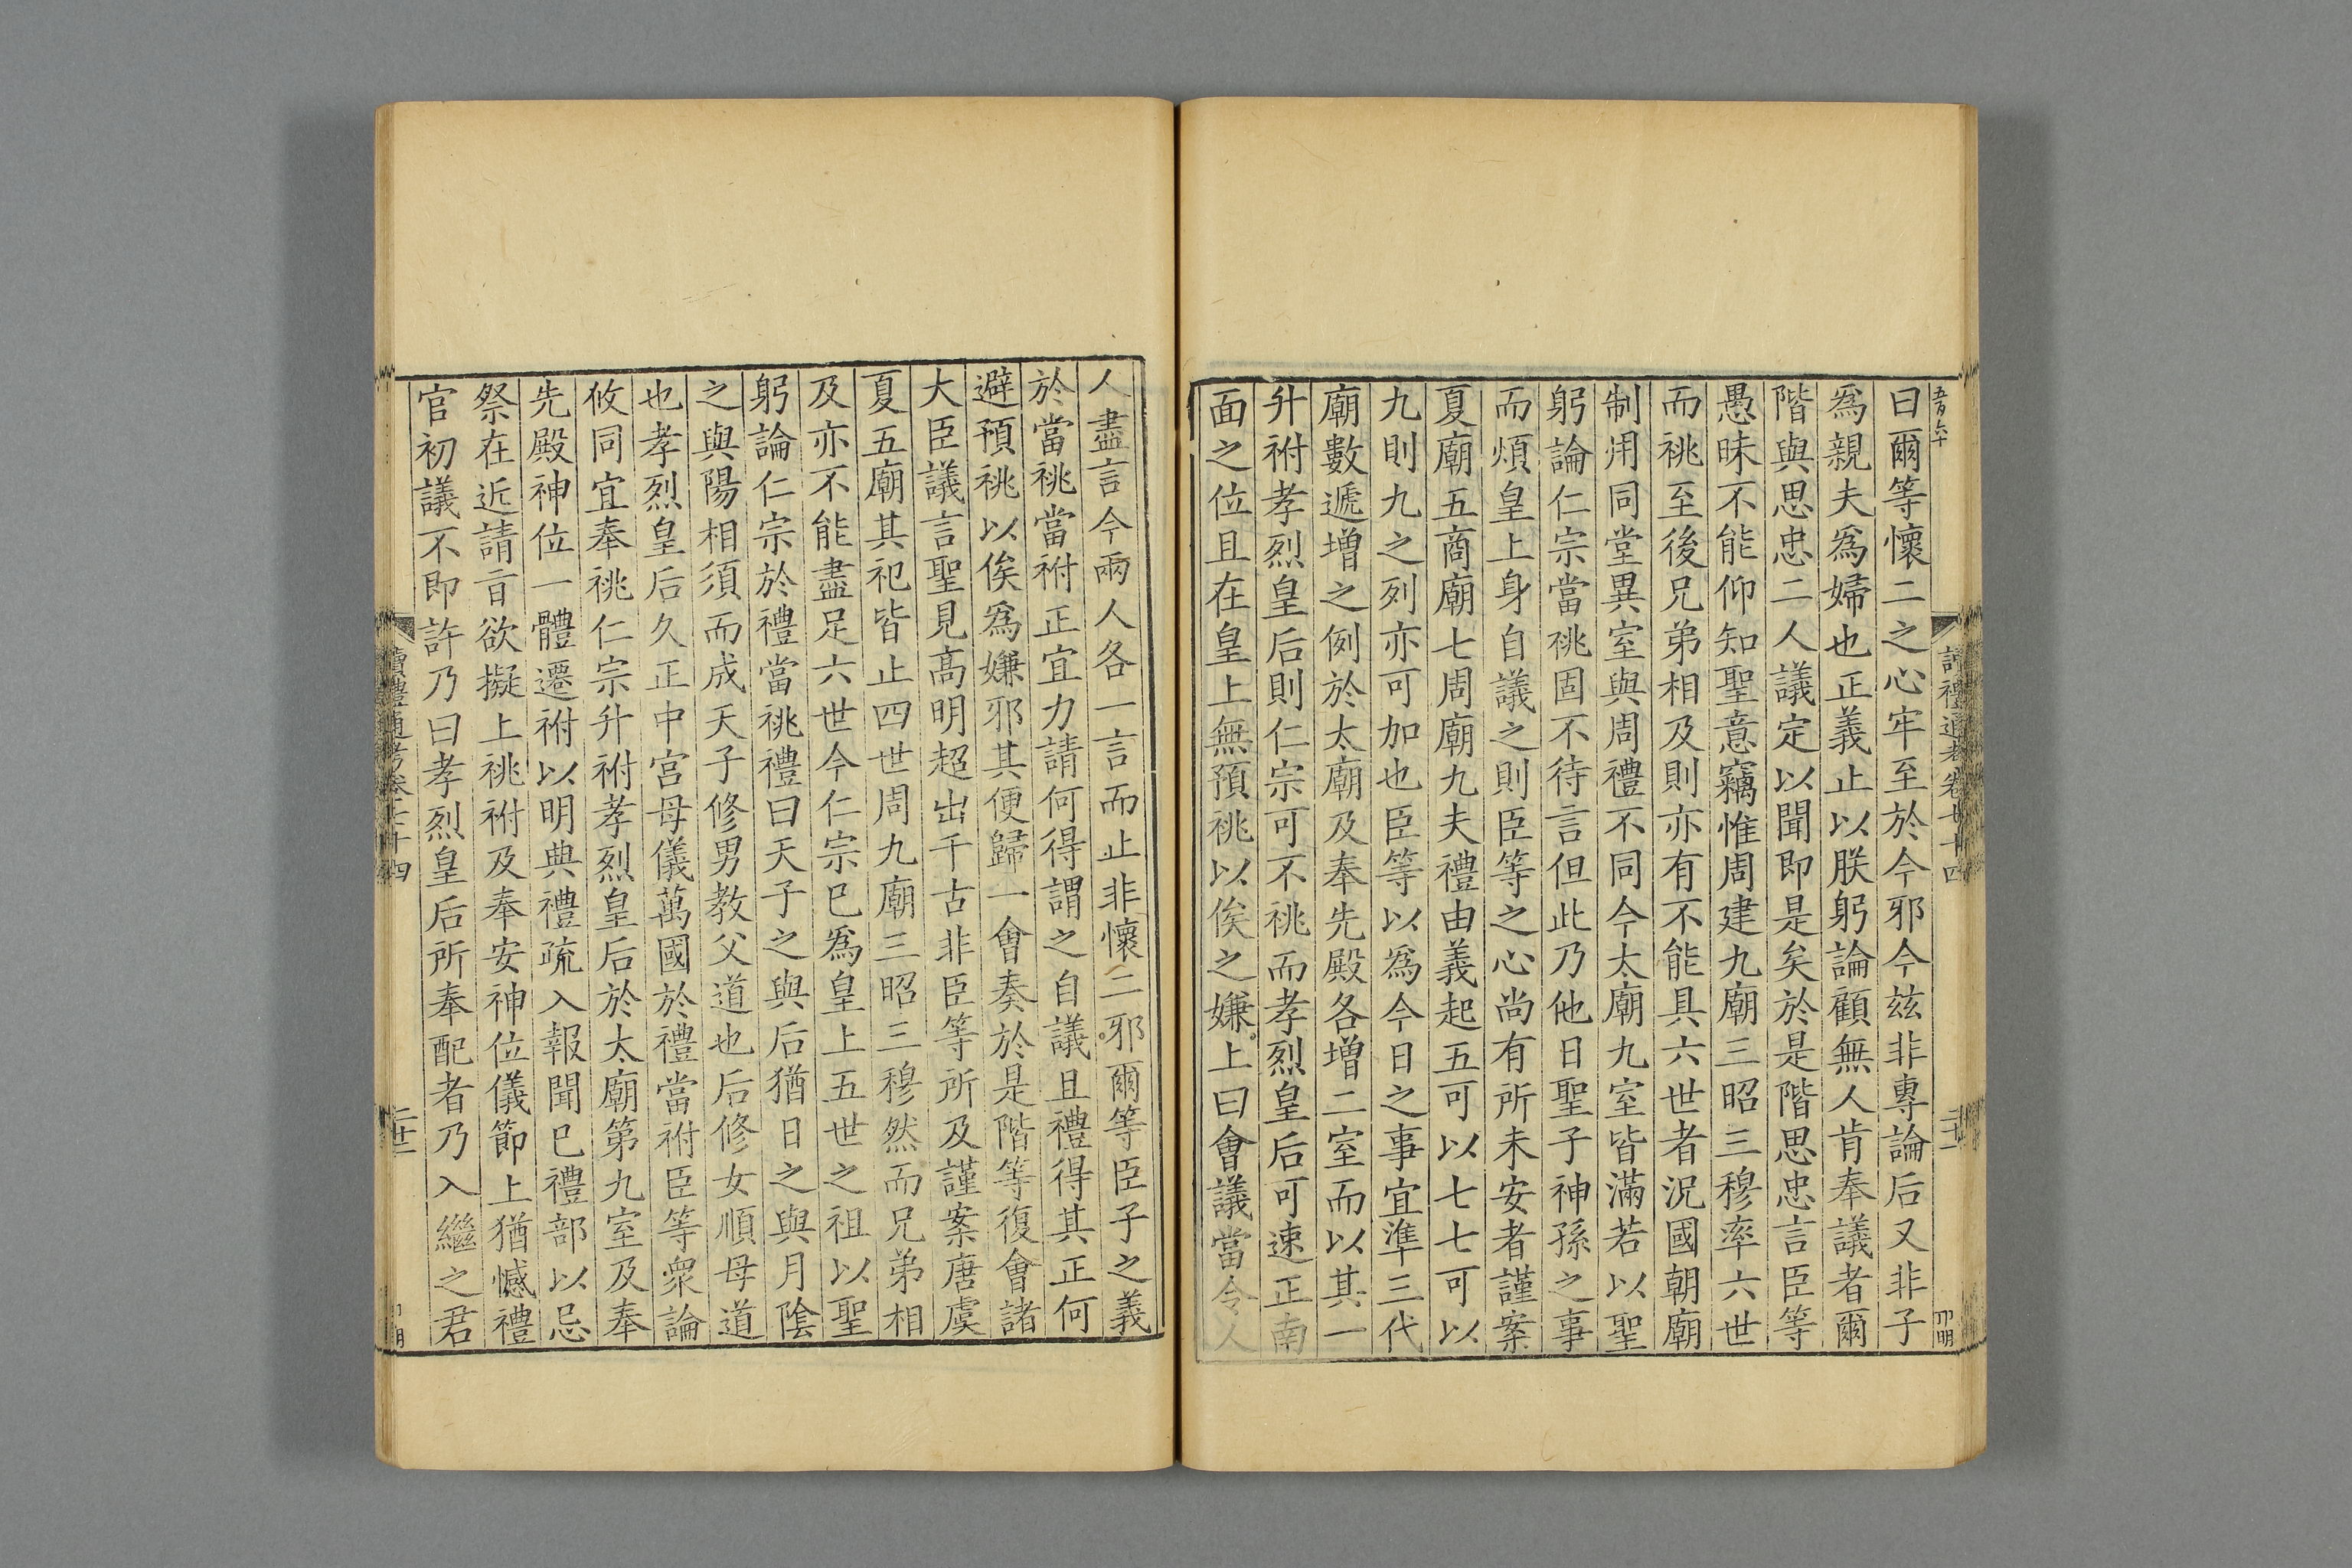 曰爾等懷二之心牢至於今邪今玆非專論后又非子
爲親夫爲婦也正義止以朕躬論顧無人肯奉議者爾
階與思忠二人議定以聞即是矣於是階思忠言臣等
愚昧不能仰知聖意竊惟周建九廟三昭三穆率六世
而祧至後兄弟相及則亦有不能具六世者況國朝廟
制用同堂異室與周禮不同今太廟九室皆滿若以聖
躬論仁宗當祧固不待言但此乃他日聖子神孫之事
而煩皇上身自議之則臣等之心尚有所未安者謹案
夏廟五商廟七周廟九夫禮由義起五可以七七可以
九則九之列亦可加也臣等以爲今日之事宜準三代
廟數遞增之例於太廟及奉先殿各增二室而以其一
升祔孝烈皇后則仁宗可不祧而孝烈皇后可速正南
面之位且在皇上無預祧以俟之嫌上曰會議當令人
人盡言今兩人各一言而止非懷二邪爾等臣子之義
於當祧當祔正宜力請何得謂之自議且禮得其正何
避預祧以俟爲嫌邪其便歸一會奏於是階等復會諸
大臣議言聖見高明超出千古非臣等所及謹案唐虞
夏五廟其祀皆止四世周九廟三昭三穆然而兄弟相
及亦不能盡足六世今仁宗巳爲皇上五世之祖以聖
躬論仁宗於禮當祧禮曰天子之與后猶日之與月陰
之與陽相須而成天子修男教父道也后修女順母道
也孝烈皇后久正中宮母儀萬國於禮當祔臣等衆論
攸同宜奉祧仁宗升祔孝烈皇后於太廟第九室及奉
先殿神位一體遷祔以明典禮疏入報聞巳禮部以忌
祭在近請㫖欲擬上祧祔及奉安神位儀節上猶憾禮
官初議不即許乃曰孝烈皇后所奉配者乃入繼之君
讀禮通考卷七十四